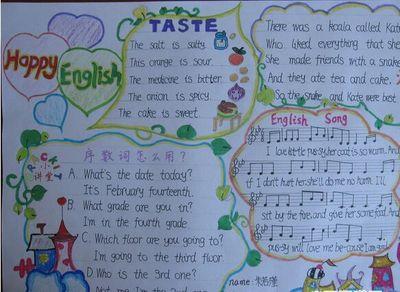 Happy
English
TASTE
The salt is salty.
This orange is sour.
The medicine is bitter.
The onion is spicy.
The cake is sweet.
There was a koala called
Who liked everything that she
She made friends with a snake
And they ate tea and cake.
So the snake and Kate were best
English Song
I love little pussy, her coat is so warm. And
if I don't hurt her she'll do me no harm. I'll
sit by the fire, and give her some food. And
pussy will love me because I am
小
讲堂
序数词怎么用?
A. What's the date today?
It's February fourteenth.
B. What grade are you in?
I'm in the fourth grade
C. Which floor are you going to?
I'm going to the third floor.
D. Who is the 3rd one?
name: 朱